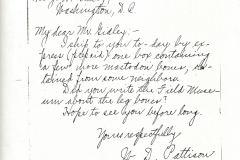 Washington, D.C.
My dear Mr. Gidley:-
I ship to you to-day by ex-
press (prepaid) one box containing
a few more mastodon bones, ob-
tained from some neighbors.
Did you write the Field Muse-
um about the leg bones?
Hope to see you before long.
Yours respectfully
W. D. Pattison